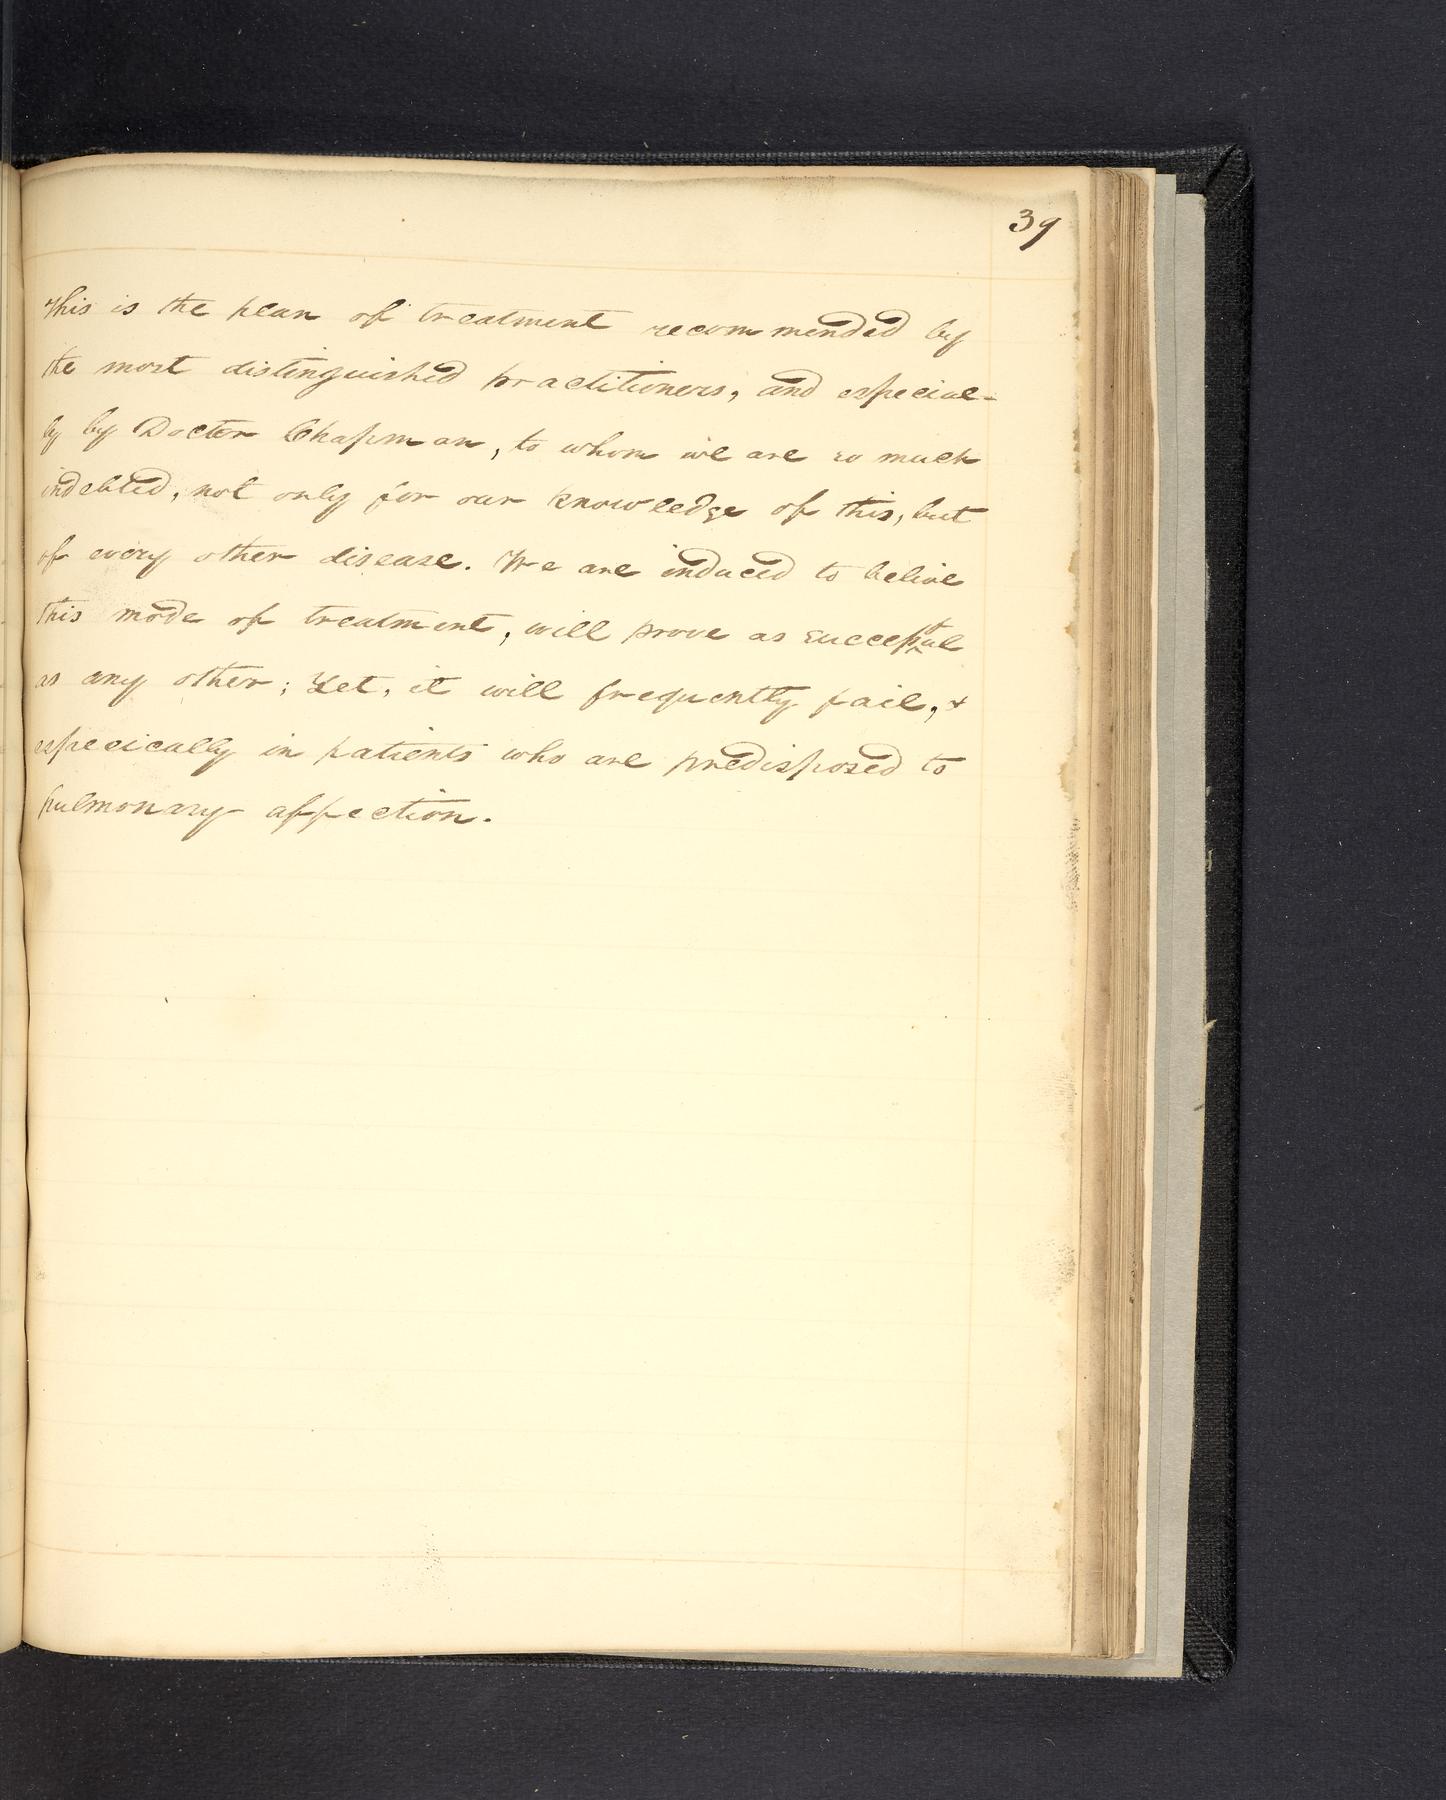 39
This is the plan of treatment recommended by
the most distinguished practitioners, and especial-
ly by Doctor Chapman, to whom we are so much
indebted, not only for our knowledge of this, but
of every other disease. We are induced to belive
this mode of treatment, will prove as succesful
as any other; Yet, it will frequently fail, &
especically in patients who are predisposed to
pulmonary affection.